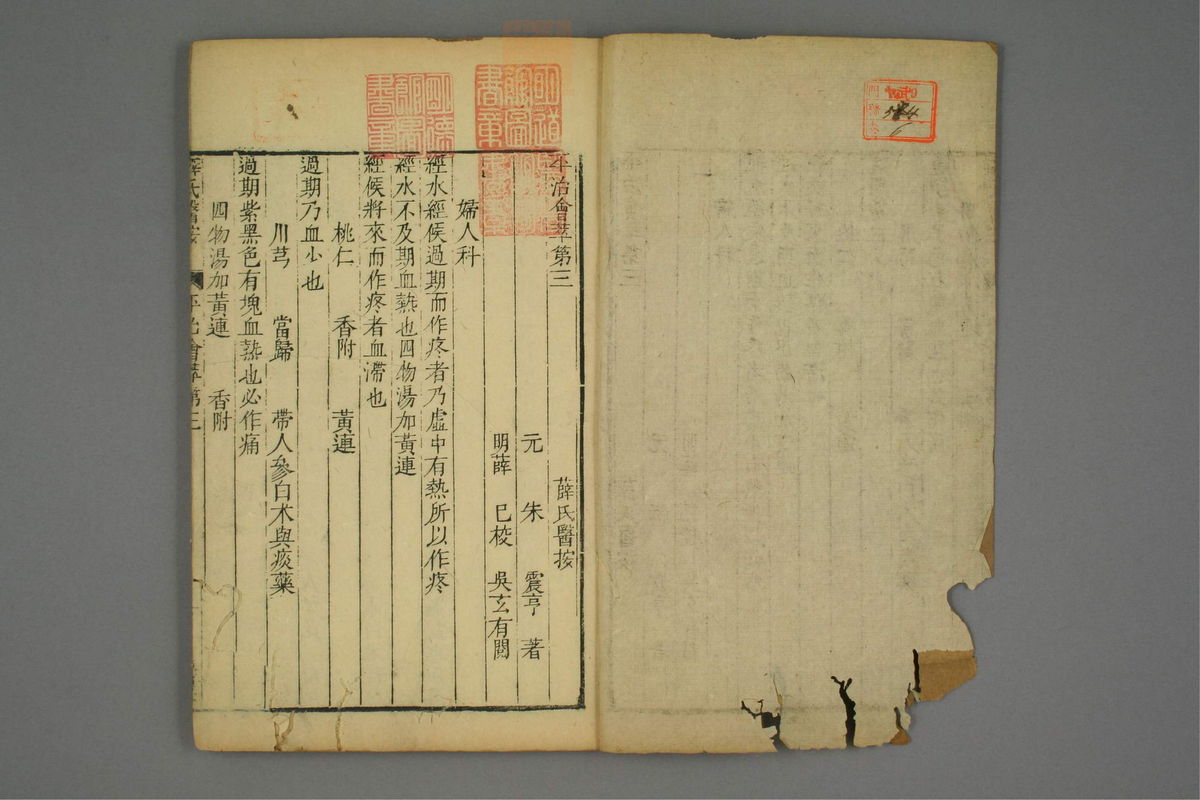 平治會萃第三 薛氏醫按
元 朱 震亨 著
明 薛 己校 吳玄有閱
婦人科
經水經候過期而作疼者乃虛中有熱所以作疼
經水不及期血熱也四物湯加黃連
經候將來而作疼者血滯也
桃仁 香附 黃連
過期乃血少也
川芎 當歸 帶人參白朮與痰藥
過期紫黑色有塊血熱也必作痛
四物湯加黃連 香附
薛氏醫按 平治會萃第三